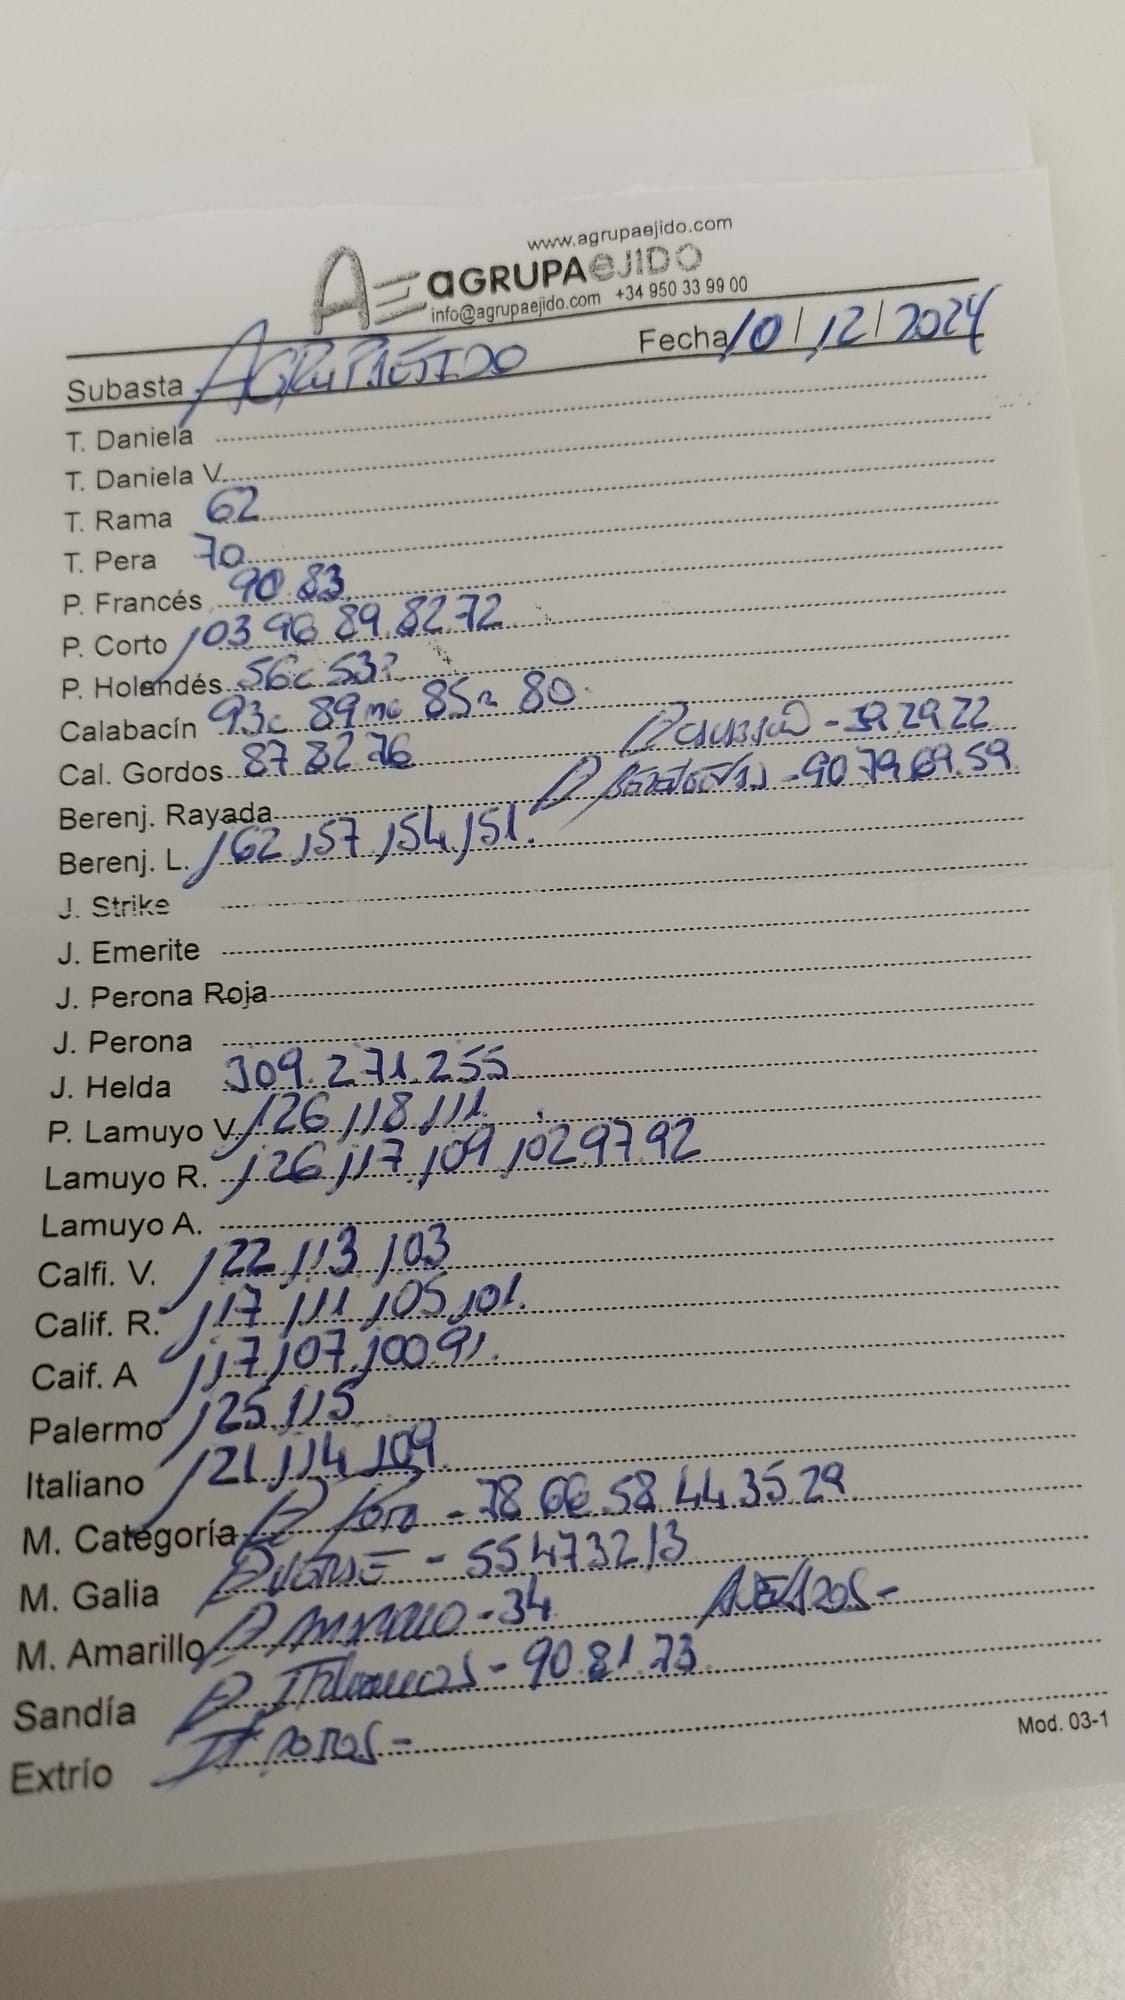 www.agrupaejido.com
AE aGRUPAeJIDO
info@agrupaejido.com +34 950 33 99 00
Subasta AGRUPAEJIDO Fecha 10/12/2024
T. Daniela
T. Daniela V.
T. Rama 62
T. Pera 70
P. Francés 90 83
P. Corto 103 96 89 82 72
P. Holandés 56c 53
Calabacín 93c 89mc 85 80
Cal. Gordos 87 82 76 - 39 29 22
Berenj. Rayada - 90 79 69 59
Berenj. L. 162 157 154 151
J. Strike
J. Emerite
J. Perona Roja
J. Perona
J. Helda 309 271 255
P. Lamuyo V. 126 118 111
Lamuyo R. 126 117 109 102 97 92
Lamuyo A.
Calfi. V. 122 113 103
Calif. R. 117 111 105 101
Caif. A 117 107 100 91
Palermo 125 115
Italiano 121 114 109
M. Categoría - 78 66 58 44 35 29
M. Galia - 55 47 32 13
M. Amarillo - 34
Sandía - 90 81 73
Extrío
Mod. 03-1